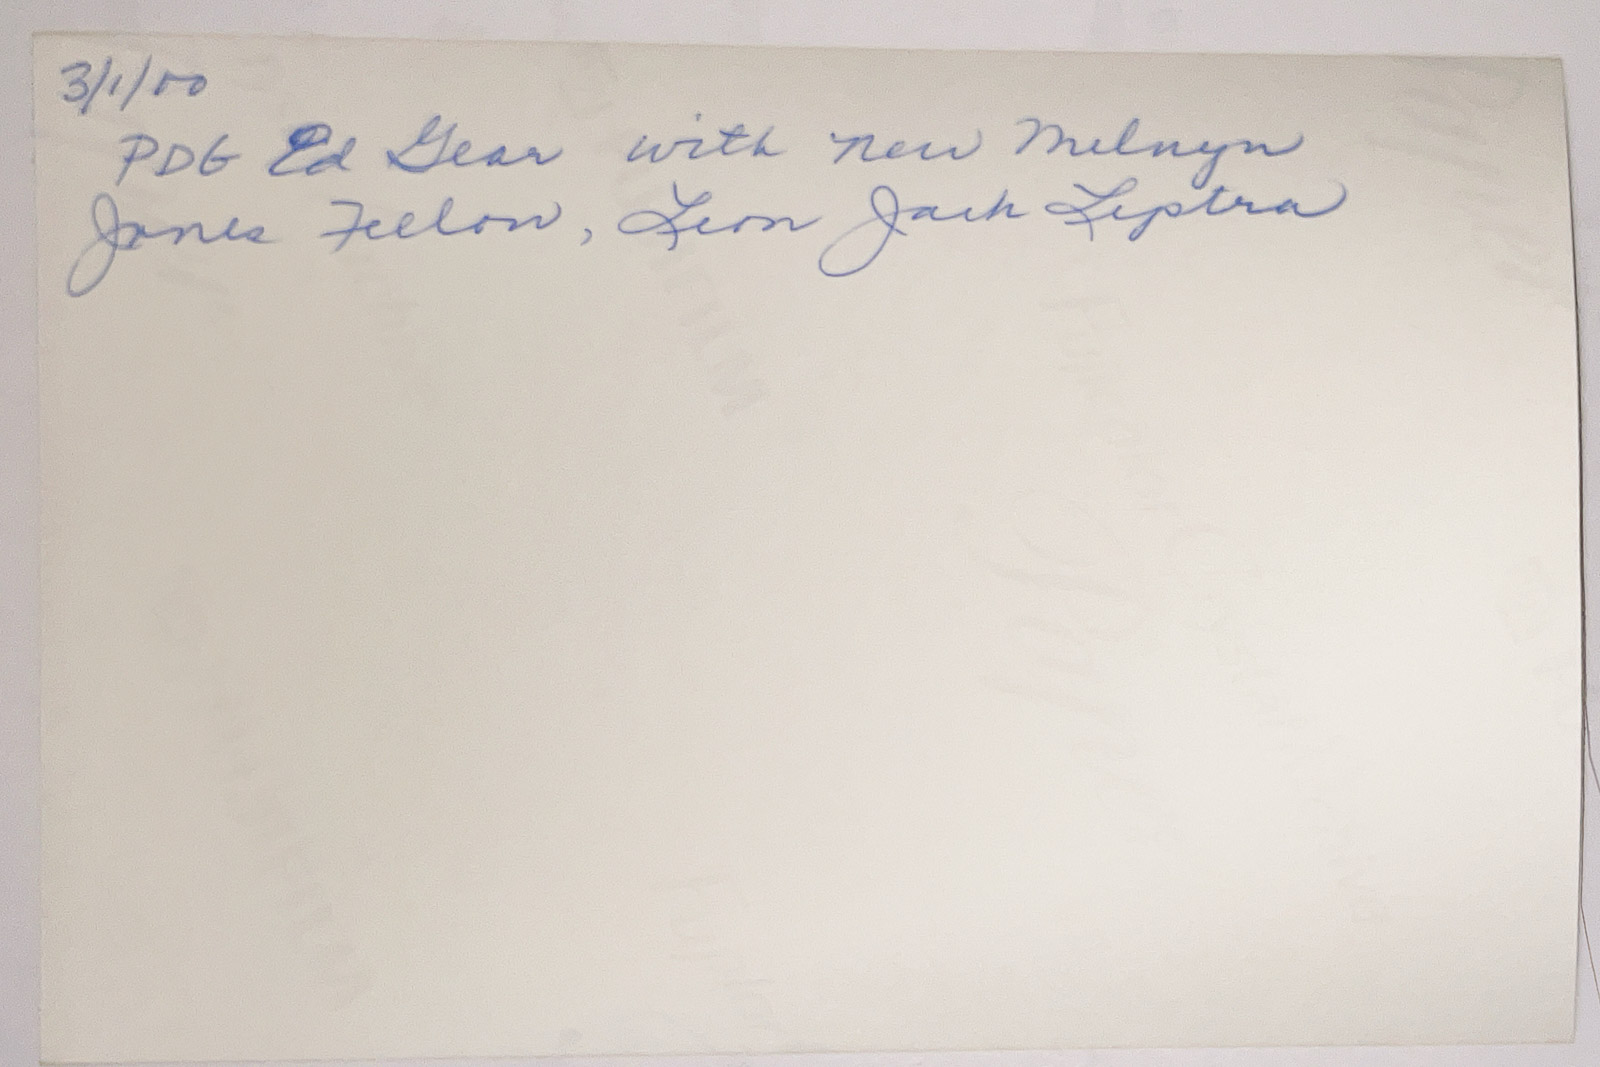 3/1/00
PDG Ed Gear with new Melnyn
Jones Fellow, Leon Jack Lipstra